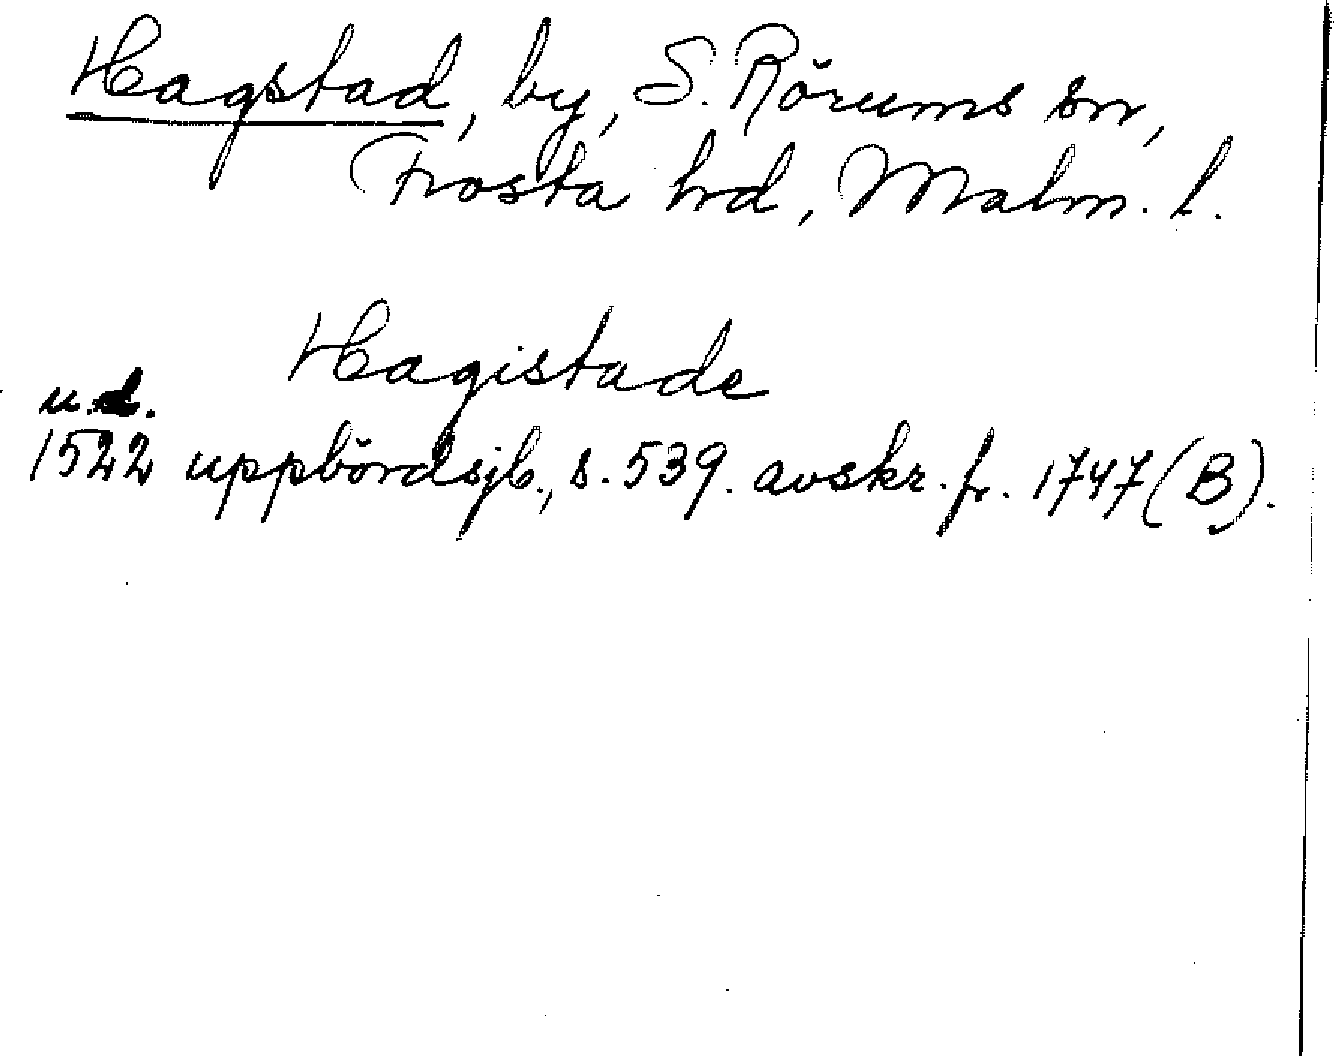 Hagstad, by, S. Rörums sn,
Frosta hd, Malm. l.
Hagistade
u.d.
1522 uppbördsjb., s. 539. avskr. fr. 1747 (B).